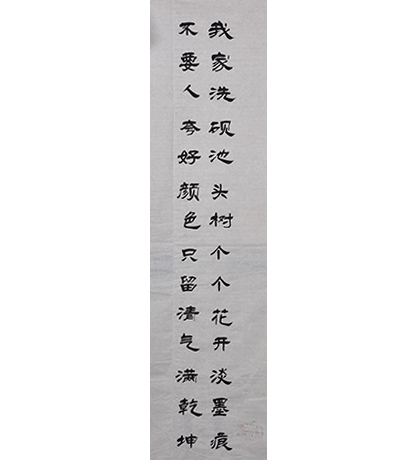 我家洗砚池头树个个花开淡墨痕
不要人夸好颜色只留清气满乾坤